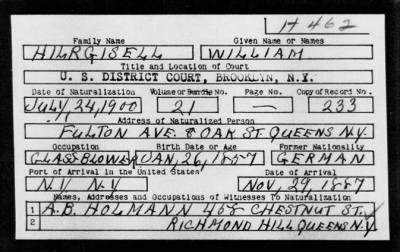 H 462
Family Name Given Name or Names
HILRGISELL WILLIAM
Title and Location of Court
U. S. DISTRICT COURT, BROOKLYN, N.Y.
Date of Naturalization Volume or Bundle No. Page No. Copy of Record No.
JULY 24, 1900 21 — 233
Address of Naturalized Person
FULTON AVE. & OAK ST. QUEENS N.Y.
Occupation Birth Date or Age Former Nationality
GLASSBLOWER JAN, 26, 1857 GERMAN
Port of Arrival in the United States Date of Arrival
N.Y. N.Y NOV, 29, 1887
Names, Addresses and Occupations of Witnesses To Naturalization
1 A. B. HOLMANN 458 CHESTNUT ST.
2 RICHMOND HILL QUEENS N.Y.